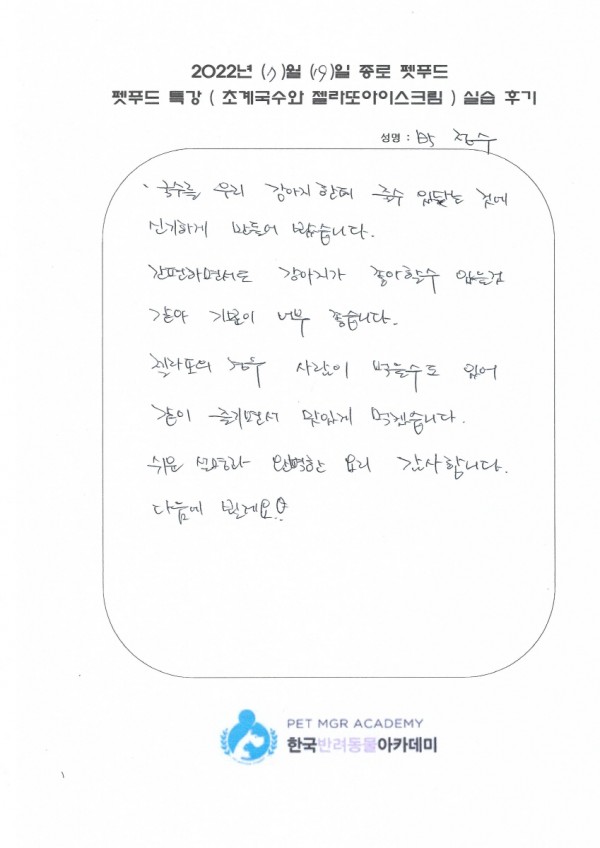 2022년 (7)월 (19)일 종로 펫푸드
펫푸드 특강 ( 초계국수와 젤라또아이스크림 ) 실습 후기
성명 : 박 진수
국수를 우리 강아지한테 줄수 있다는 것에
신기하게 만들어 봤습니다.
간편하면서도 강아지가 좋아할수 있는것
같아 기분이 너무 좋습니다.
젤라또의 경우 사람이 먹을수도 있어
같이 즐기면서 맛있게 먹겠습니다.
쉬운 설명과 완벽한 요리 감사합니다.
다음에 뵐게요!
PET MGR ACADEMY
한국반려동물아카데미